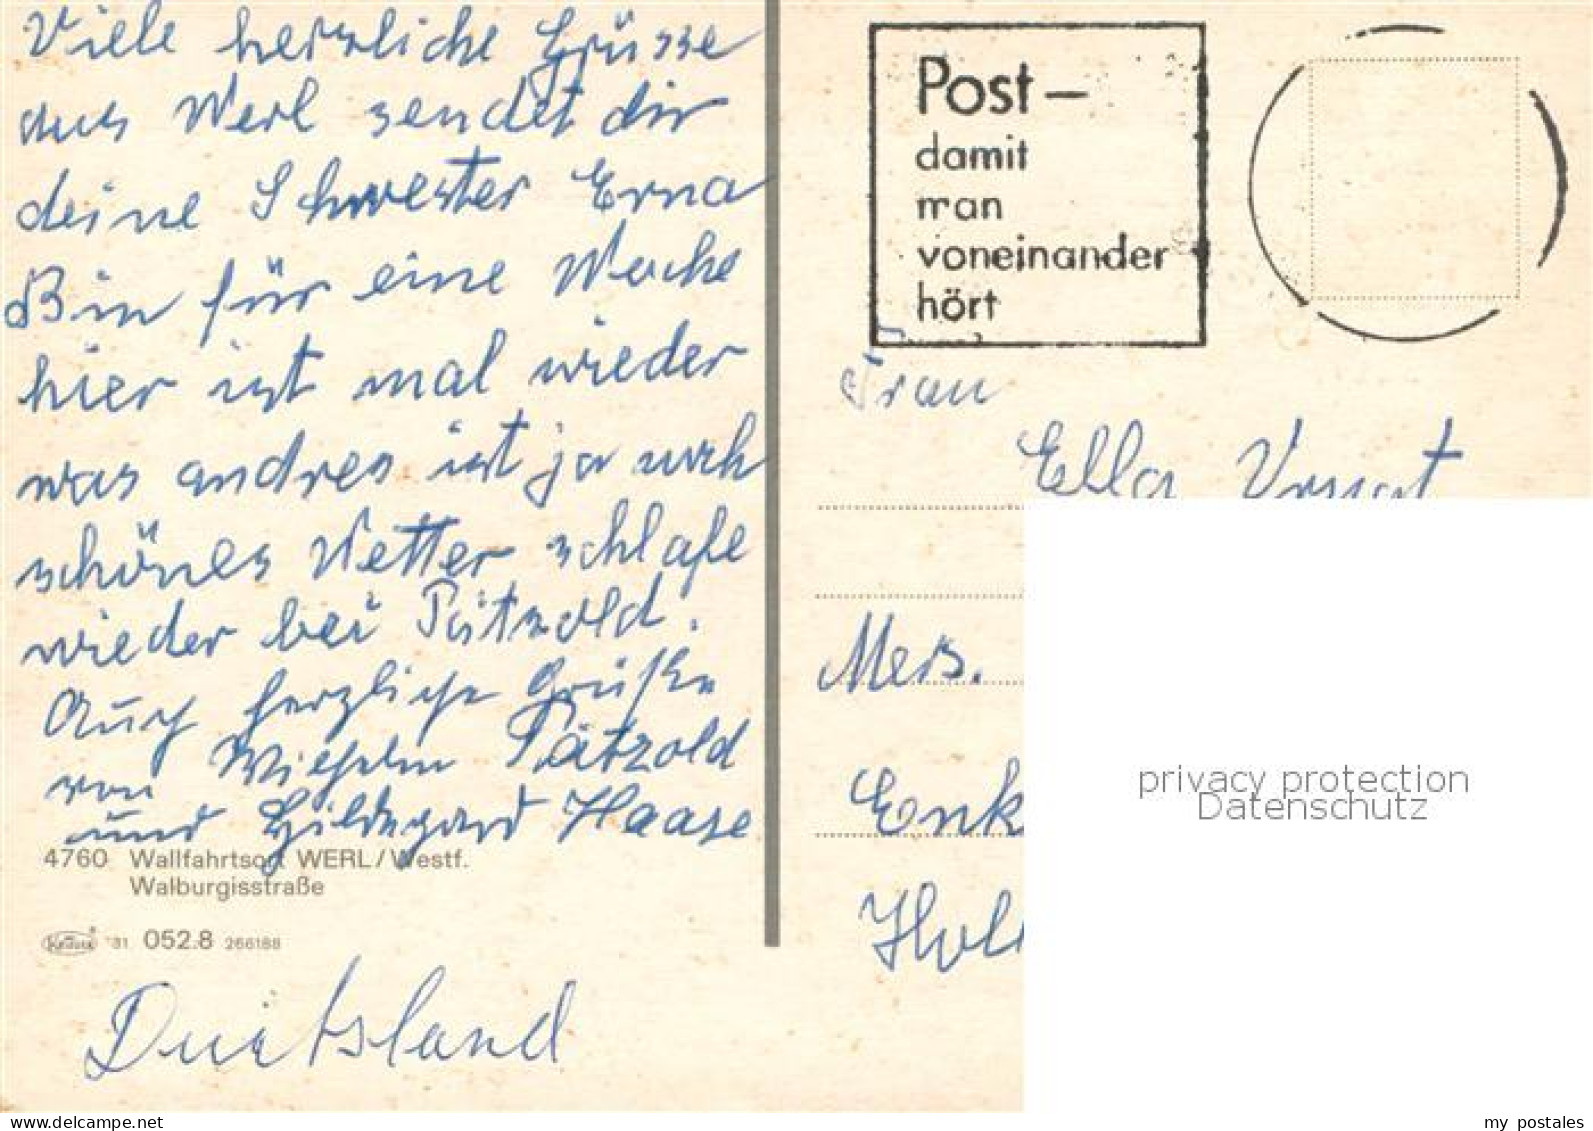 Viele herzliche Grüsse
aus Werl sendet dir
deine Schwester Erna
Bin für eine Woche
hier ist mal wieder
was andres ist ja auch
schönes Wetter schlafe
wieder bei Pätzold.
Auch herzliche Grüße
von Wilhelm Pätzold
und Hildegard Haase
4760 Wallfahrtsort WERL/Westf.
Walburgisstraße
Krüger '31 052.8 266188
Duitsland
Post –
damit
man
voneinander
hört
Frau
Ella
Mers.
Enk
Holl
privacy protection
Datenschutz
www.delcampe.net
my_postales